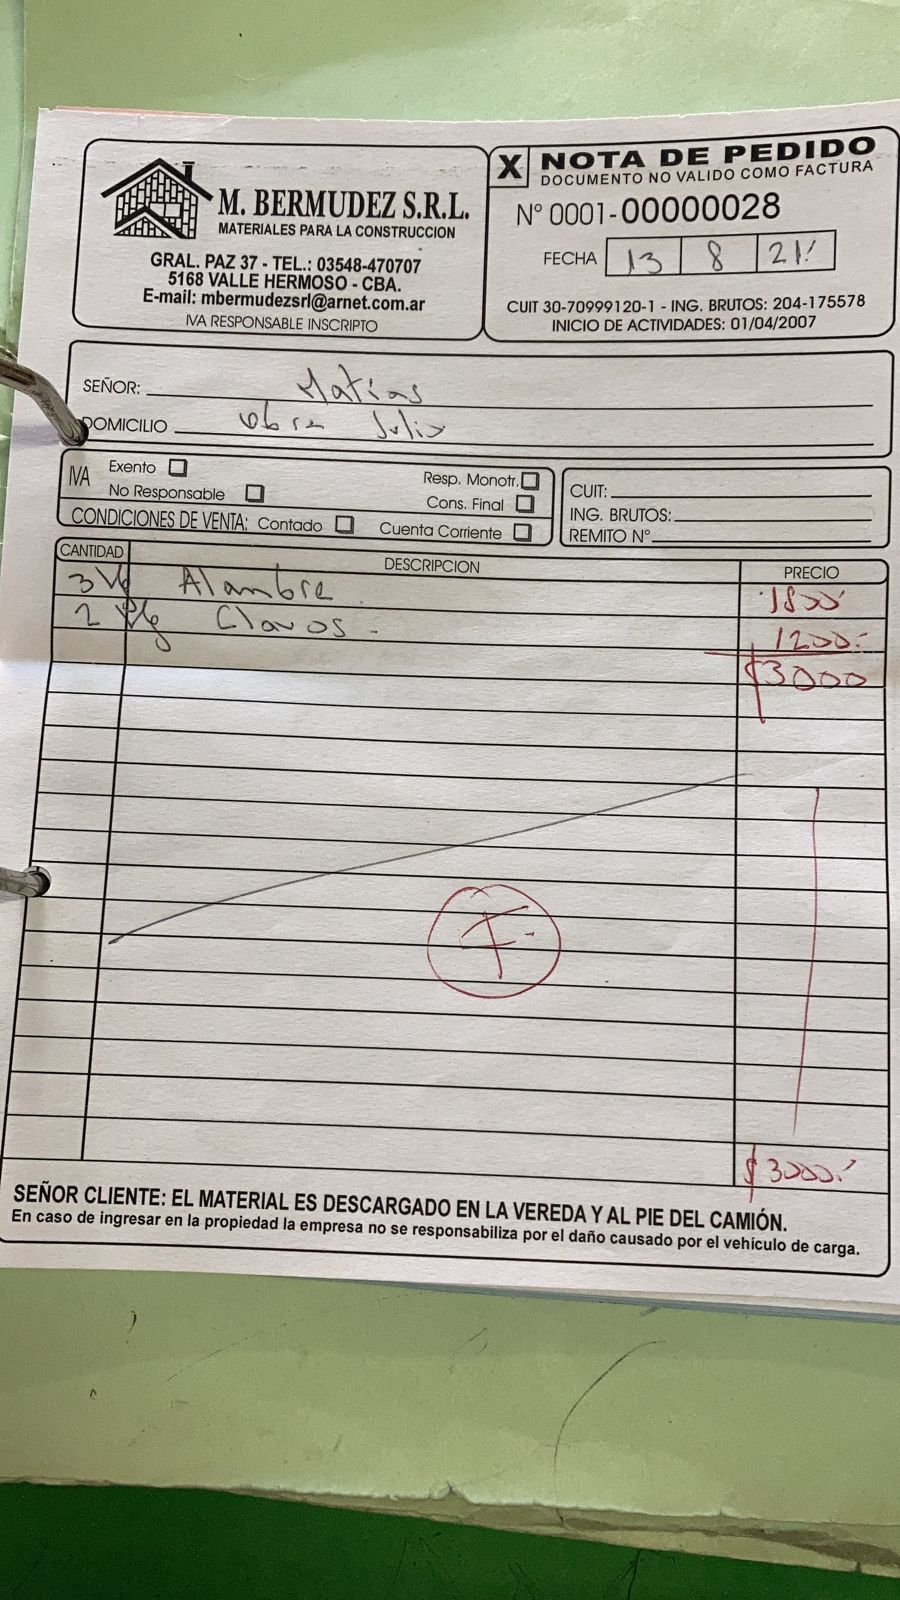 M. BERMUDEZ S.R.L.
MATERIALES PARA LA CONSTRUCCION
GRAL. PAZ 37 - TEL.: 03548-470707
5168 VALLE HERMOSO - CBA.
E-mail: mbermudezsrl@arnet.com.ar
IVA RESPONSABLE INSCRIPTO
X NOTA DE PEDIDO
DOCUMENTO NO VALIDO COMO FACTURA
Nº 0001-00000028
FECHA 13 8 21
CUIT 30-70999120-1 - ING. BRUTOS: 204-175578
INICIO DE ACTIVIDADES: 01/04/2007
SEÑOR: Matias
DOMICILIO Obra Julio
IVA Exento
No Responsable
Resp. Monotr.
Cons. Final
CONDICIONES DE VENTA: Contado Cuenta Corriente
CUIT:
ING. BRUTOS:
REMITO Nº
CANTIDAD DESCRIPCION PRECIO
3 Kg Alambre 1800
2 Kg Clavos 1200
$3000
F
$3000
SEÑOR CLIENTE: EL MATERIAL ES DESCARGADO EN LA VEREDA Y AL PIE DEL CAMIÓN.
En caso de ingresar en la propiedad la empresa no se responsabiliza por el daño causado por el vehículo de carga.